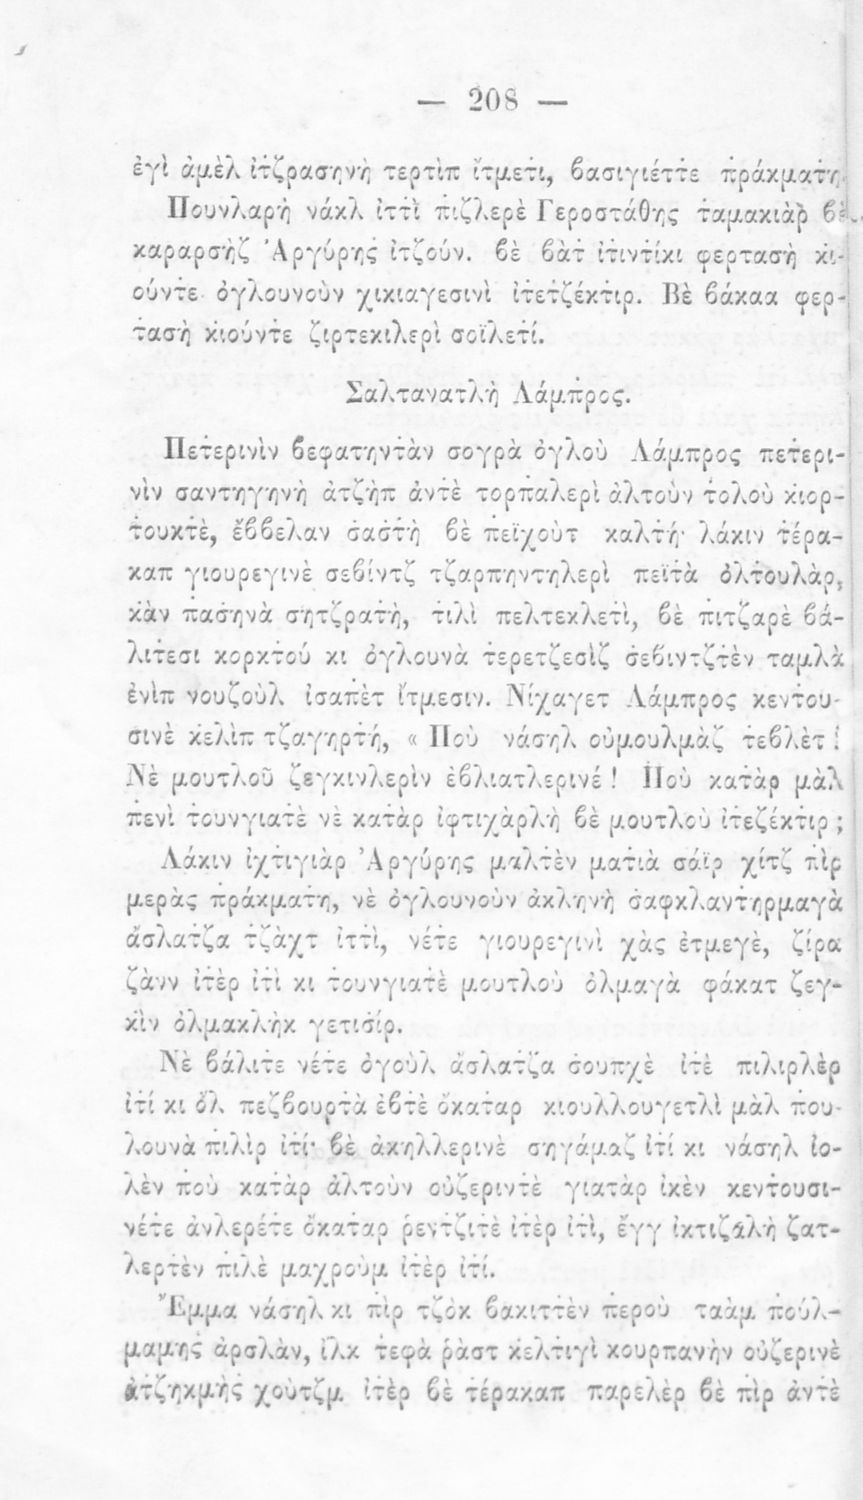 — 208 —
ἐγὶ ἀμὲλ ἰτζρασηνὴ τερτὶπ ἴτμετι, βασιγιέττε πράκματη.
Πουνλαρὴ νάκλ ἰττὶ πιζλερὲ Γεροστάθης ταμακιὰρ βὲ
καραρσὴζ Ἀργύρης ἰτζούν. βὲ βὰτ ἰτιντίκι φερτασὴ κι-
ούντε ὀγλουνοὺν χικιαγεσινὶ ἰτετζέκτιρ. Βὲ βάκαα φερ-
τασὴ κιούντε ζιρτεκιλερὶ σοϊλετί.
Σαλτανατλὴ Λάμπρος.
Πετερινὶν βεφατηντὰν σογρὰ ὀγλοὺ Λάμπρος πετερι-
νὶν σαντηγηνὴ ἀτζὴπ ἀντὲ τορπαλερὶ ἀλτοὺν τολοὺ κιορ-
τουκτὲ, ἔββελαν σαστὴ βὲ πεϊχοὺτ καλτή· λάκιν τέρα-
καπ γιουρεγινὲ σεβίντζ τζαρπηντηλερὶ πεϊτὰ ὀλτουλὰρ,
κὰν πασηνὰ σητζρατὴ, τιλὶ πελτεκλετὶ, βὲ πιτζαρὲ βά-
λιτεσι κορκτού κι ὀγλουνὰ τερετζεσὶζ σεβιντζτὲν ταμλὰ
ἐνὶπ νουζοὺλ ἰσαπὲτ ἴτμεσιν. Νίχαγετ Λάμπρος κεντου-
σινὲ κελὶπ τζαγηρτή, « Ποὺ νάσηλ οὐμουλμὰζ τεβλὲτ !
Νὲ μουτλοῦ ζεγκινλερὶν ἐβλιατλερινέ ! Ποὺ κατὰρ μὰλ
πενὶ τουνγιατὲ νὲ κατὰρ ἰφτιχὰρλὴ βὲ μουτλοὺ ἰτεζέκτιρ ;
Λάκιν ἰχτιγιὰρ Ἀργύρης μαλτὲν ματιὰ σάϊρ χίτζ πὶρ
μερὰς πράκματη, νὲ ὀγλουνοὺν ἀκληνὴ σαφκλαντηρμαγὰ
ἄσλατζα τζὰχτ ἰττὶ, νέτε γιουρεγινὶ χὰς ἐτμεγὲ, ζίρα
ζὰνν ἰτὲρ ἰτὶ κι τουνγιατὲ μουτλοὺ ὀλμαγὰ φάκατ ζεγ-
κὶν ὀλμακλὴκ γετισίρ.
Νὲ βάλιτε νέτε ὀγοὺλ ἄσλατζα σουπχὲ ἰτὲ πιλιρλὲρ
ἰτί κι ὂλ πεζβουρτὰ ἐβτὲ ὄκαταρ κιουλλουγετλὶ μὰλ που-
λουνὰ πιλὶρ ἰτί· βὲ ἀκηλλερινὲ σηγάμαζ ἰτί κι νάσηλ ἰο-
λὲν ποὺ κατὰρ ἀλτοὺν οὐζεριντὲ γιατὰρ ἰκὲν κεντουσι-
νέτε ἀνλερέτε ὄκαταρ ῥεντζιτὲ ἰτὲρ ἰτὶ, ἔγγ ἰκτιζαλὴ ζατ-
λερτὲν πιλὲ μαχροὺμ ἰτὲρ ἰτί.
Ἔμμα νάσηλ κι πὶρ τζὸκ βακιττὲν περοὺ ταὰμ πούλ-
μαμης ἀρσλὰν, ἲλκ τεφὰ ῥὰστ κελτιγὶ κουρπανὴν οὐζερινὲ
ἀτζηκμὴς χοὺτζμ ἰτὲρ βὲ τέρακαπ παρελὲρ βὲ πὶρ ἀντὲ